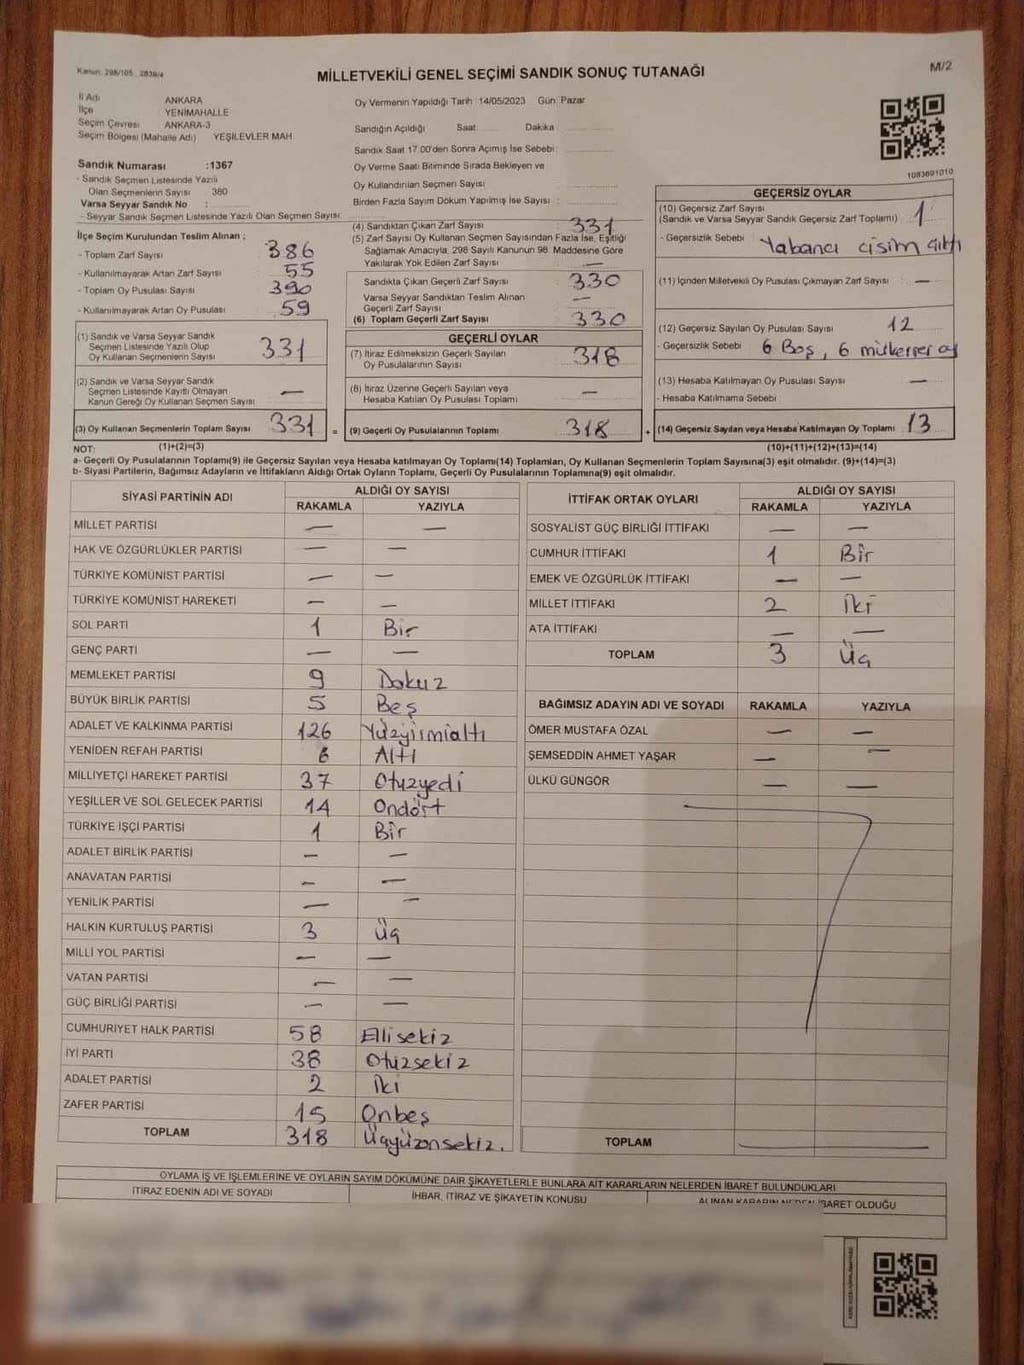 Kanun: 298/105, 2839/4
MİLLETVEKİLİ GENEL SEÇİMİ SANDIK SONUÇ TUTANAĞI
M/2
İl Adı ANKARA
İlçe YENİMAHALLE
Seçim Çevresi ANKARA-3
Seçim Bölgesi (Mahalle Adı) YEŞİLEVLER MAH
Sandık Numarası :1367
- Sandık Seçmen Listesinde Yazılı
Olan Seçmenlerin Sayısı 380
Varsa Seyyar Sandık No :
- Seyyar Sandık Seçmen Listesinde Yazılı Olan Seçmen Sayısı:
İlçe Seçim Kurulundan Teslim Alınan ;
- Toplam Zarf Sayısı 386
- Kullanılmayarak Artan Zarf Sayısı 55
- Toplam Oy Pusulası Sayısı 390
- Kullanılmayarak Artan Oy Pusulası 59
(1) Sandık ve Varsa Seyyar Sandık
Seçmen Listesinde Yazılı Olup
Oy Kullanan Seçmenlerin Sayısı 331
(2) Sandık ve Varsa Seyyar Sandık
Seçmen Listesinde Kayıtlı Olmayan
Kanun Gereği Oy Kullanan Seçmen Sayısı —
(3) Oy Kullanan Seçmenlerin Toplam Sayısı 331
Oy Vermenin Yapıldığı Tarih :14/05/2023 Gün: Pazar
Sandığın Açıldığı Saat Dakika
Sandık Saat 17.00'den Sonra Açımış İse Sebebi:
Oy Verme Saati Bitiminde Sırada Bekleyen ve
Oy Kullandırılan Seçmen Sayısı :
Birden Fazla Sayım Döküm Yapılmış İse Sayısı :
(4) Sandıktan Çıkan Zarf Sayısı 331
(5) Zarf Sayısı Oy Kullanan Seçmen Sayısından Fazla İse, Eşitliği
Sağlamak Amacıyla, 298 Sayılı Kanunun 98. Maddesine Göre
Yakılarak Yok Edilen Zarf Sayısı —
Sandıkta Çıkan Geçerli Zarf Sayısı 330
Varsa Seyyar Sandıktan Teslim Alınan
Geçerli Zarf Sayısı —
(6) Toplam Geçerli Zarf Sayısı 330
GEÇERLİ OYLAR
(7) İtiraz Edilmeksizin Geçerli Sayılan
Oy Pusulalarının Sayısı 318
(8) İtiraz Üzerine Geçerli Sayılan veya
Hesaba Katılan Oy Pusulası Toplamı —
= (9) Geçerli Oy Pusulalarının Toplamı 318
1083691010
GEÇERSİZ OYLAR
(10) Geçersiz Zarf Sayısı
(Sandık ve Varsa Seyyar Sandık Geçersiz Zarf Toplamı) 1
- Geçersizlik Sebebi : Yabancı cisim çıktı
(11) İçinden Milletvekili Oy Pusulası Çıkmayan Zarf Sayısı : —
(12) Geçersiz Sayılan Oy Pusulası Sayısı 12
- Geçersizlik Sebebi : 6 Boş, 6 mükerrer oy
(13) Hesaba Katılmayan Oy Pusulası Sayısı —
- Hesaba Katılmama Sebebi :
+ (14) Geçersiz Sayılan veya Hesaba Katılmayan Oy Toplamı 13
NOT: (1)+(2)=(3) (10)+(11)+(12)+(13)=(14)
a- Geçerli Oy Pusulalarının Toplamı(9) ile Geçersiz Sayılan veya Hesaba katılmayan Oy Toplamı(14) Toplamları, Oy Kullanan Seçmenlerin Toplam Sayısına(3) eşit olmalıdır. (9)+(14)=(3)
b- Siyasi Partilerin, Bağımsız Adayların ve İttifakların Aldığı Ortak Oyların Toplamı, Geçerli Oy Pusulalarının Toplamına(9) eşit olmalıdır.
SİYASİ PARTİNİN ADI ALDIĞI OY SAYISI
RAKAMLA YAZIYLA
MİLLET PARTİSİ — —
HAK VE ÖZGÜRLÜKLER PARTİSİ — —
TÜRKİYE KOMÜNİST PARTİSİ — —
TÜRKİYE KOMÜNİST HAREKETİ — —
SOL PARTİ 1 Bir
GENÇ PARTİ — —
MEMLEKET PARTİSİ 9 Dokuz
BÜYÜK BİRLİK PARTİSİ 5 Beş
ADALET VE KALKINMA PARTİSİ 126 Yüzyirmialtı
YENİDEN REFAH PARTİSİ 6 Altı
MİLLİYETÇİ HAREKET PARTİSİ 37 Otuzyedi
YEŞİLLER VE SOL GELECEK PARTİSİ 14 Ondört
TÜRKİYE İŞÇİ PARTİSİ 1 Bir
ADALET BİRLİK PARTİSİ — —
ANAVATAN PARTİSİ — —
YENİLİK PARTİSİ — —
HALKIN KURTULUŞ PARTİSİ 3 Üç
MİLLİ YOL PARTİSİ — —
VATAN PARTİSİ — —
GÜÇ BİRLİĞİ PARTİSİ — —
CUMHURİYET HALK PARTİSİ 58 Ellisekiz
İYİ PARTİ 38 Otuzsekiz
ADALET PARTİSİ 2 İki
ZAFER PARTİSİ 15 Onbeş
TOPLAM 318 Üçyüzonsekiz.
İTTİFAK ORTAK OYLARI ALDIĞI OY SAYISI
RAKAMLA YAZIYLA
SOSYALİST GÜÇ BİRLİĞİ İTTİFAKI — —
CUMHUR İTTİFAKI 1 Bir
EMEK VE ÖZGÜRLÜK İTTİFAKI — —
MİLLET İTTİFAKI 2 İki
ATA İTTİFAKI — —
TOPLAM 3 Üç
BAĞIMSIZ ADAYIN ADI VE SOYADI RAKAMLA YAZIYLA
ÖMER MUSTAFA ÖZAL — —
ŞEMSEDDİN AHMET YAŞAR — —
ÜLKÜ GÜNGÖR — —
TOPLAM —
OYLAMA İŞ VE İŞLEMLERİNE VE OYLARIN SAYIM DÖKÜMÜNE DAİR ŞİKAYETLERLE BUNLARA AİT KARARLARIN NELERDEN İBARET BULUNDUKLARI
İTİRAZ EDENİN ADI VE SOYADI İHBAR, İTİRAZ VE ŞİKAYETİN KONUSU ALINAN KARARIN NEDEN İBARET OLDUĞU